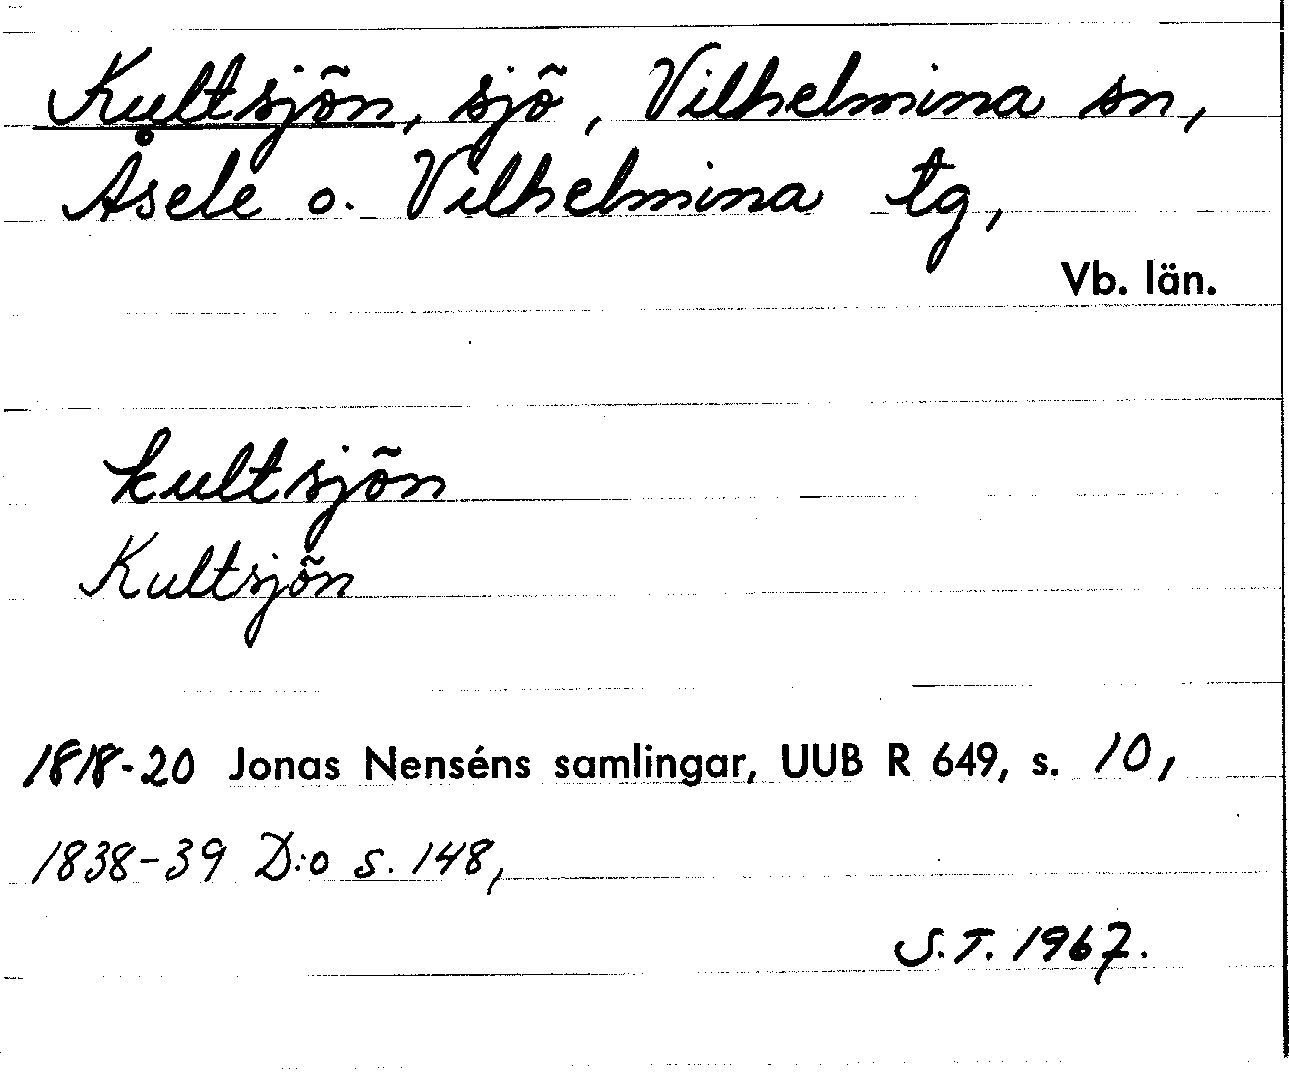 Kultsjön, sjö, Vilhelmina sn,
Åsele o. Vilhelmina tg,
Vb. län.
kultsjön
Kultsjön
1818-20 Jonas Nenséns samlingar, UUB R 649, s. 10,
1838-39 D:o s. 148,
S.T. 1967.